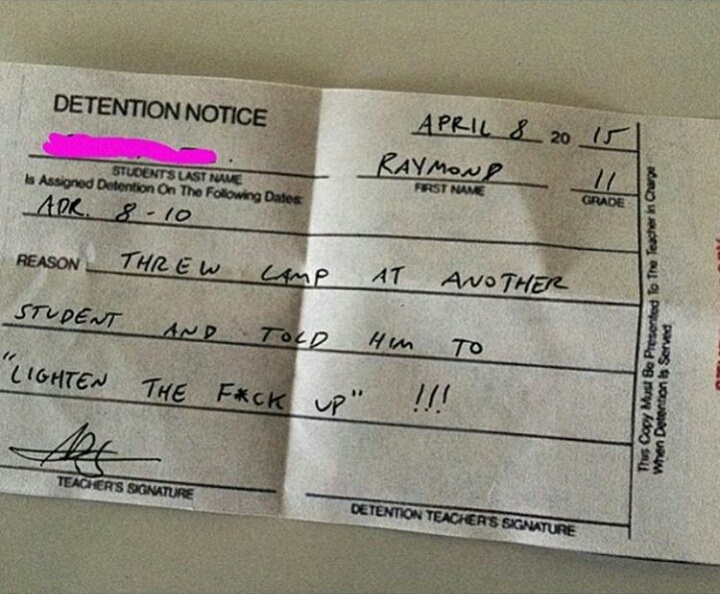 DETENTION NOTICE
APRIL 8 20 15
RAYMOND 11
STUDENT'S LAST NAME FIRST NAME GRADE
Is Assigned Detention On The Following Dates:
APR. 8-10
REASON THREW LAMP AT ANOTHER
STUDENT AND TOLD HIM TO
"LIGHTEN THE F*CK UP" !!!
TEACHER'S SIGNATURE
DETENTION TEACHER'S SIGNATURE
This Copy Must Be Presented To The Teacher In Charge
When Detention Is Served